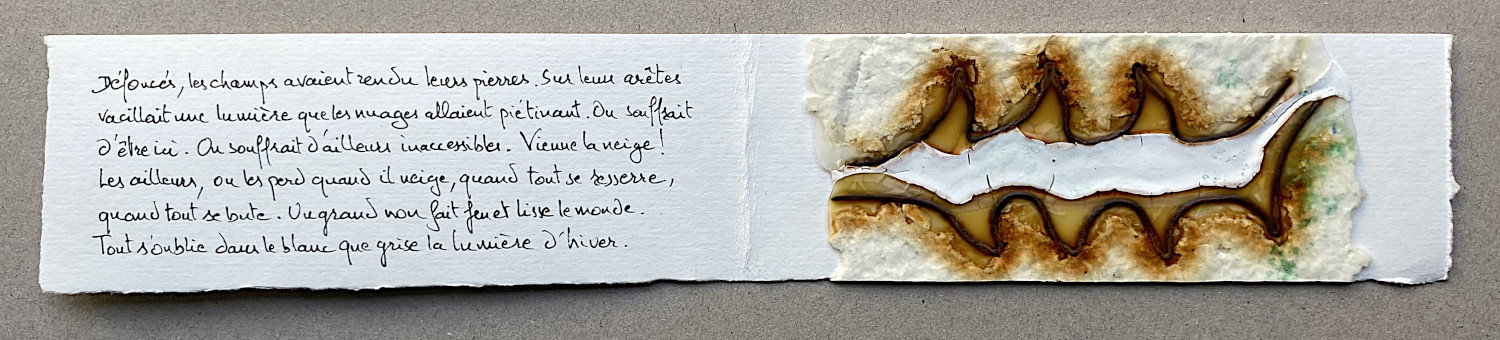 Défoncés, les champs avaient rendu leurs pierres. Sur leurs arêtes
vacillait une lumière que les nuages allaient piétinant. On souffrait
d'être ici. On souffrait d'ailleurs inaccessibles. Vienne la neige !
Les ailleurs, on les perd quand il neige, quand tout se resserre,
quand tout se bute. Un grand non fait feu et lisse le monde.
Tout s'oublie dans le blanc que grise la lumière d'hiver.